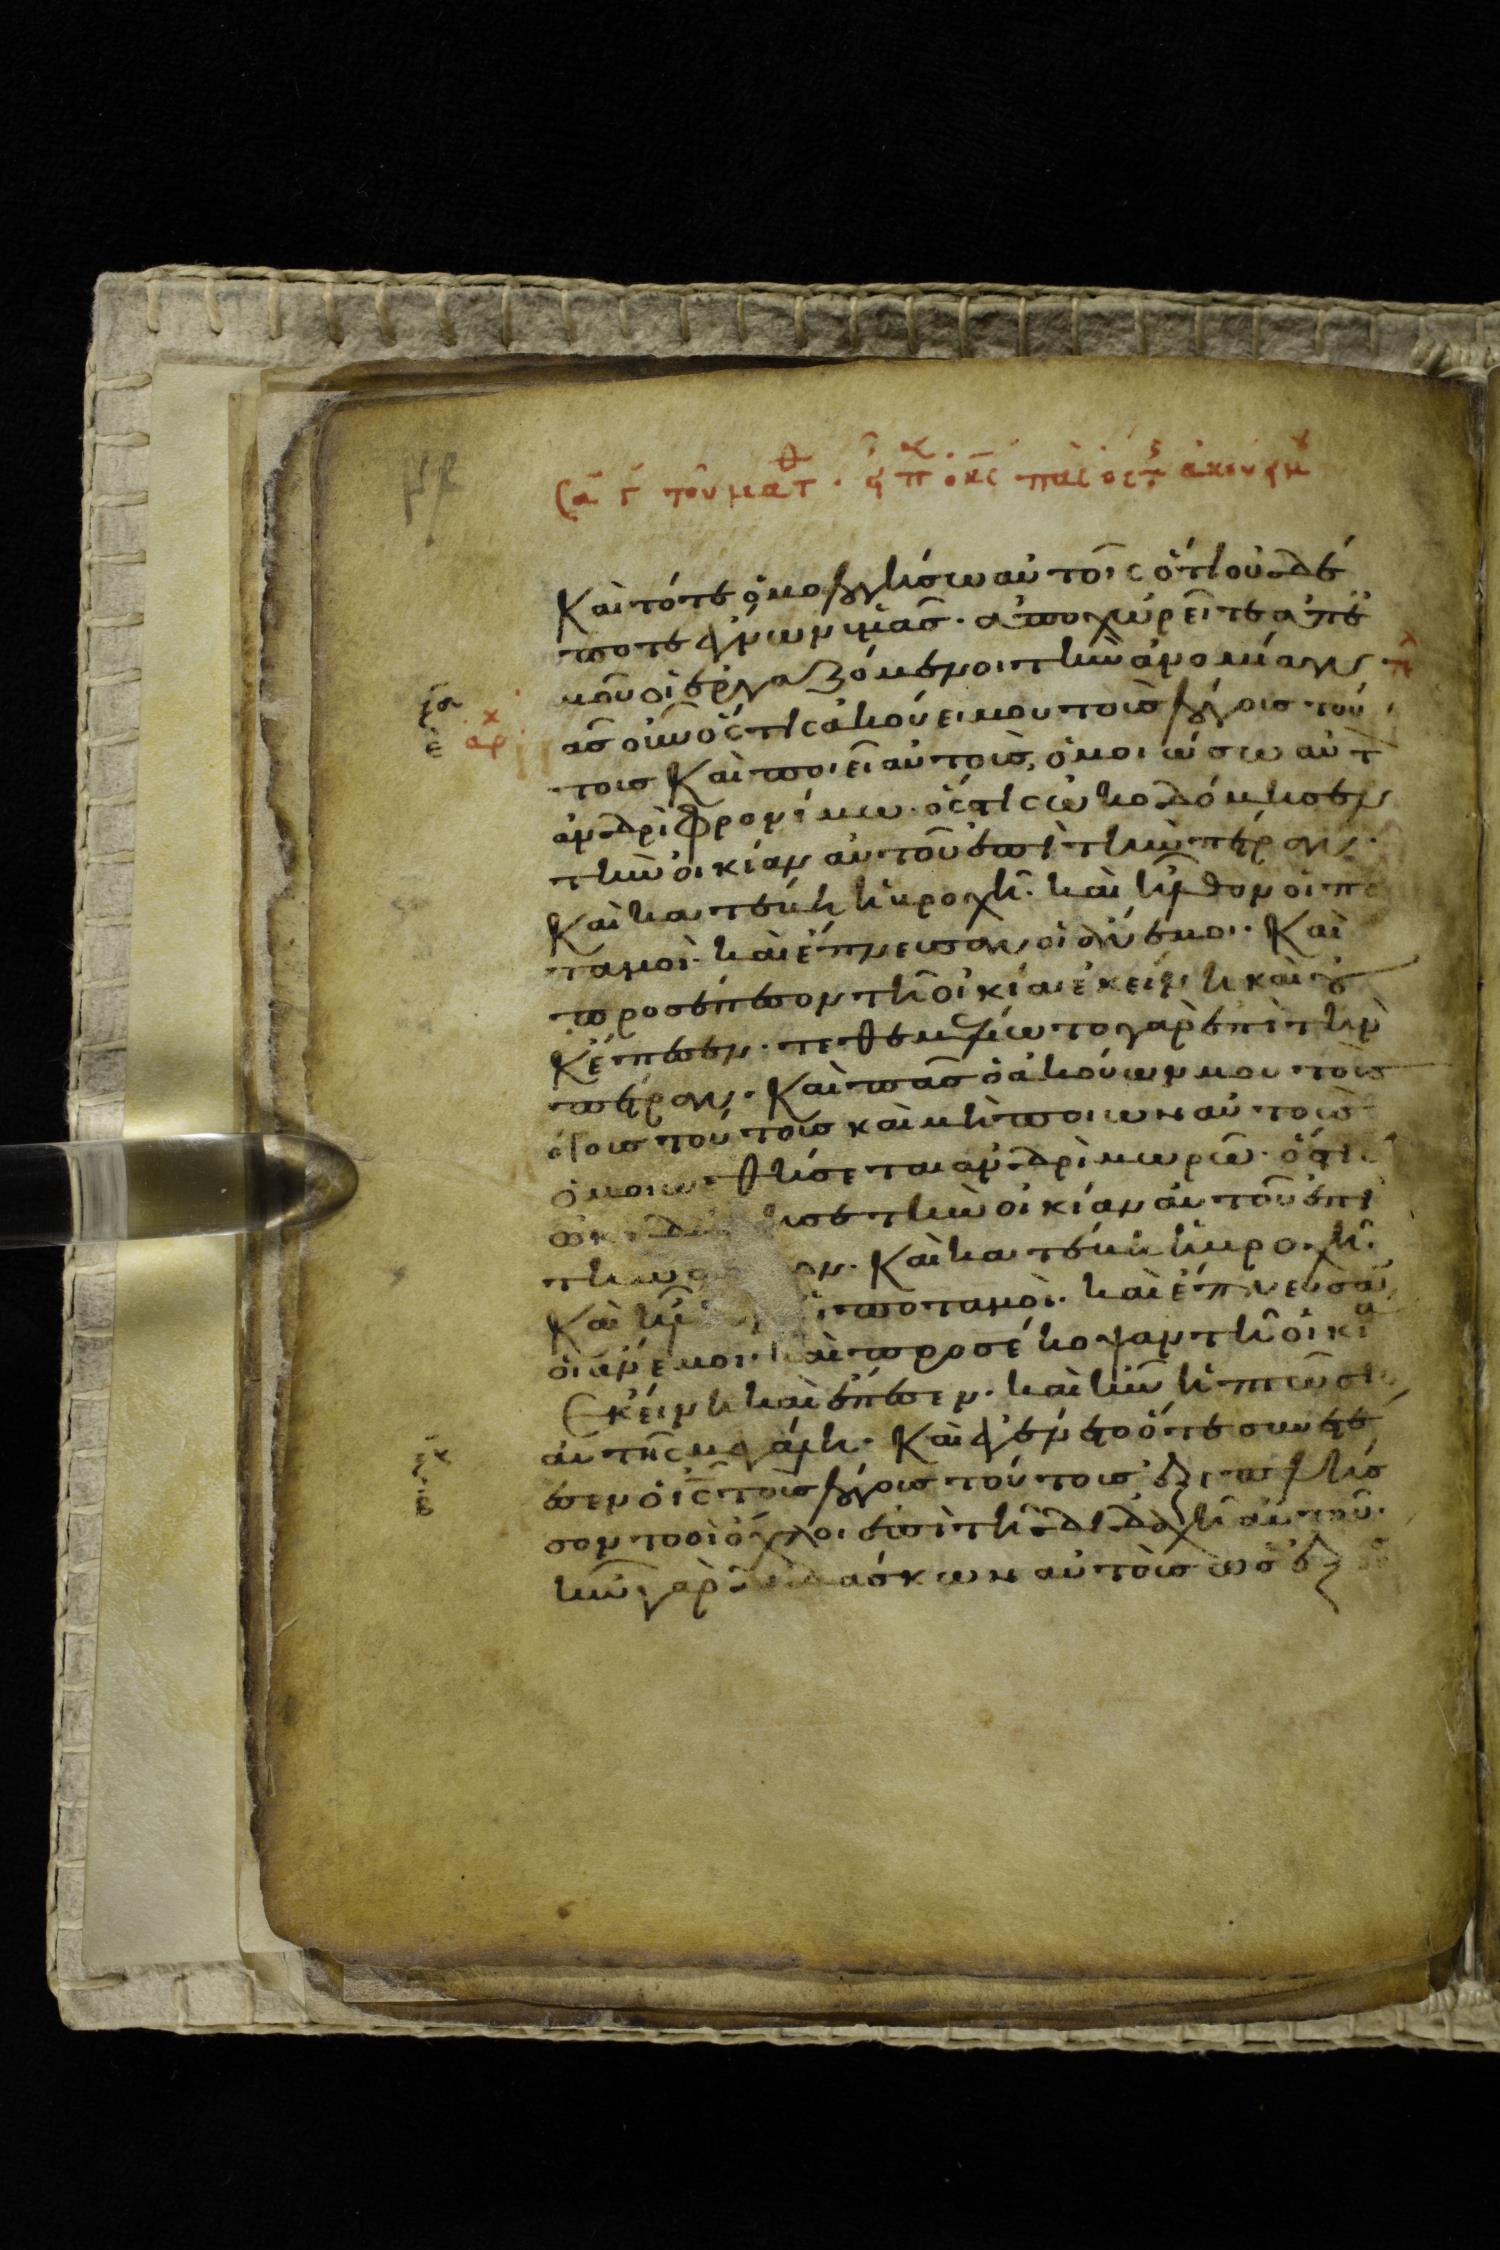 Και τότε ὁμολογήσω αὐτοῖς ὅτι οὐδέ
ποτε ἔγνων ὑμᾶς· ἀποχωρεῖτε ἀπ ἐ
μοῦ οἱ ἐργαζόμενοι τὴν ἀνομίαν π
ᾶς οὖν ὅστις ἀκούει μου τοὺς λόγους τού
τους Καὶ ποιεῖ αὐτούς, ὁμοιώσω αὐτ
ἀνδρὶ φρονίμω· ὅστις ὠκοδόμησεν
τὴν οἰκίαν αὐτοῦ ἐπὶ τὴν πέτραν·
Καὶ κατέβη ἡ βροχή· καὶ ἦλθον οἱ πο
ταμοὶ· καὶ ἔπνευσαν οἱ ἄνεμοι· Καὶ
προσέπεσον τῆ οἰκία ἐκείνη καὶ οὐ
Κ ἔπεσεν· τεθεμελίωτο γὰρ ἐπὶ τὴν
πέτραν· Καὶ πᾶς ὁ ἀκούων μου τοὺς
λόγους τούτους καὶ μὴ ποιων αὐτοὺς
ὁμοιωθήσεται ἀνδρὶ μωρῶ· ὅστις
τὴν οἰκίαν αὐτοῦ ἐπὶ
τὴν Καὶ κατέβη ἡ βροχή·
Καὶ ποταμοὶ· καὶ ἔπνευσαν
οἱ ἄνεμοι· καὶ προσέκοψαν τῆ οἰκία
Ἐκείνη καὶ ἔπεσεν· καὶ ἦν ἡ πτῶσις
αὐτῆς μεγάλη· Καὶ ἐγένετο ὅτε συνετέ
λεσεν ὁ ις τοὺς λόγους τούτους ἐξεπλήσ
σοντο οἱ ὄχλοι ἐπὶ τῆ διδαχῆ αὐτοῦ·
ἦν γὰρ διδάσκων αὐτοὺς ὡς ἐξου